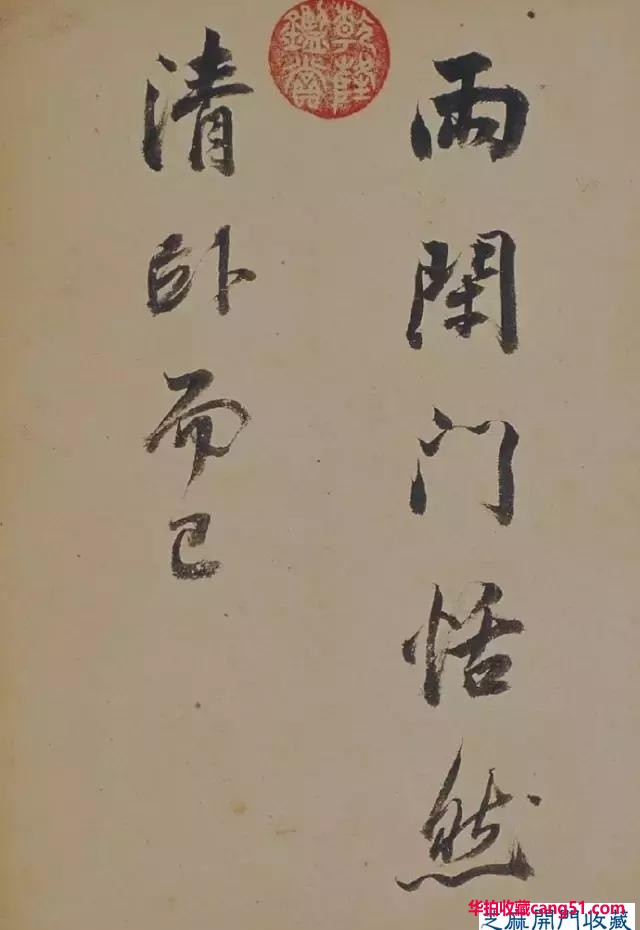 雨閑门恬然
清卧而已
乾隆
鑑賞
华拍收藏cang51.com
芝麻開門收藏